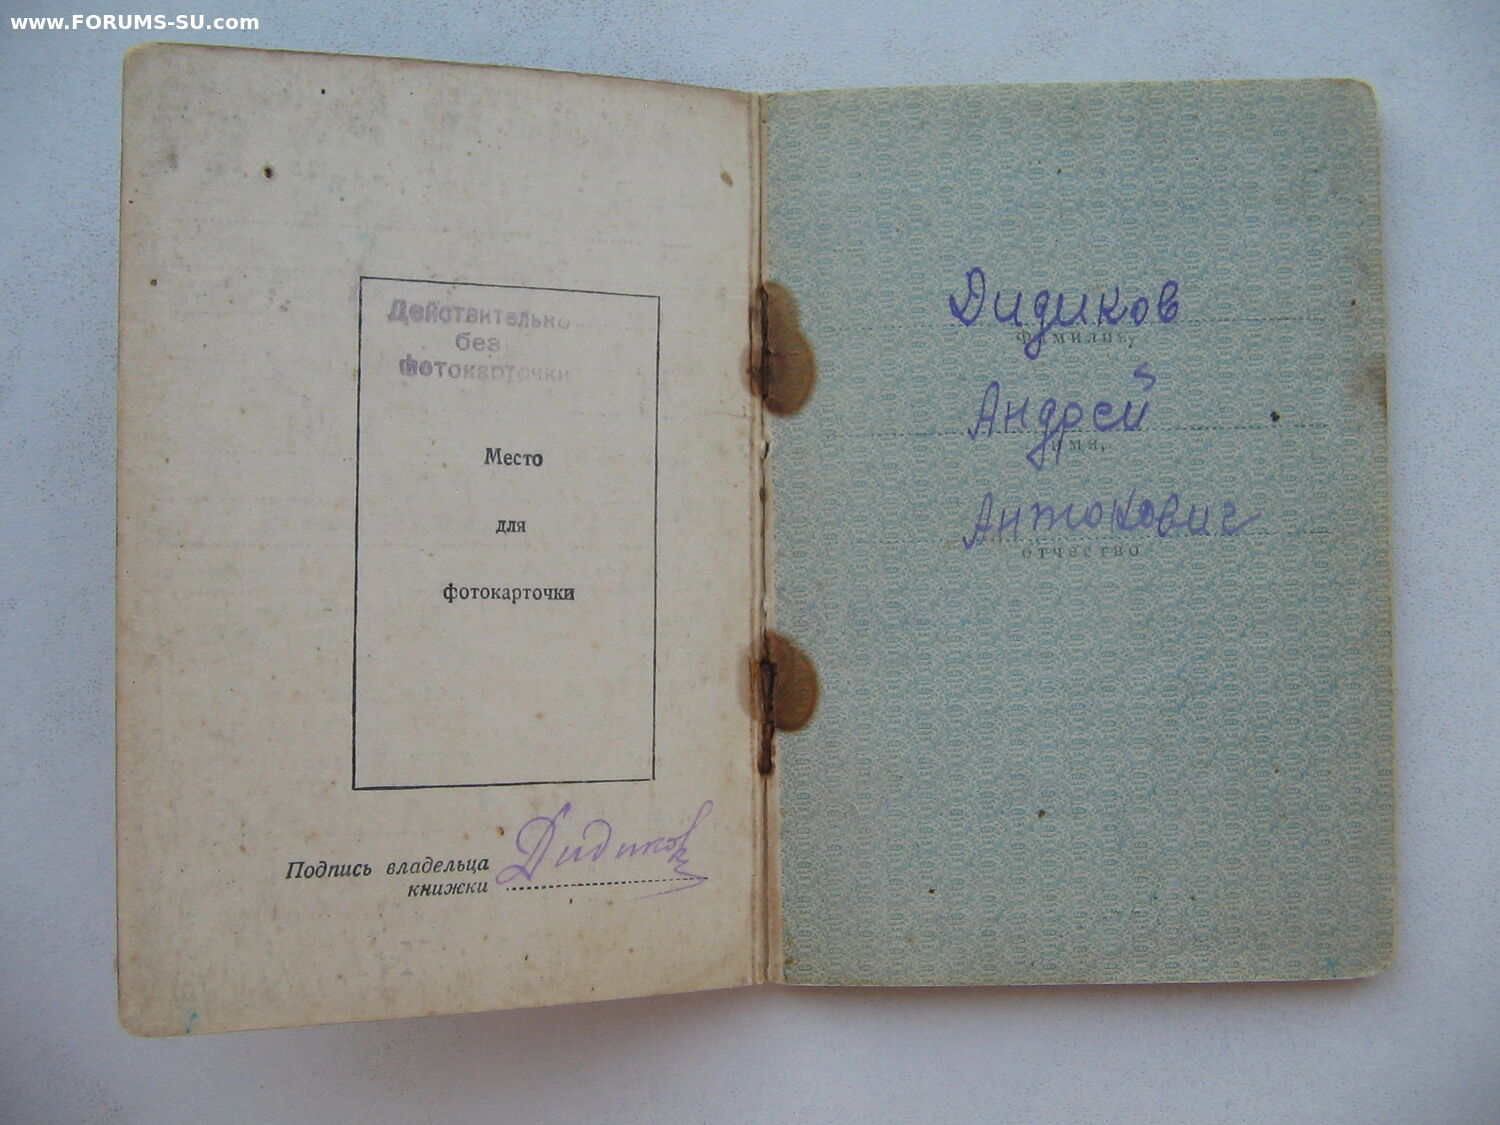 www.FORUMS-SU.com
Действительно
без
фотокарточки
Место
для
фотокарточки
Подпись владельца
книжки
Дидиков
Дидиков
фамилия,
Андрей
имя,
Антонович
отчество